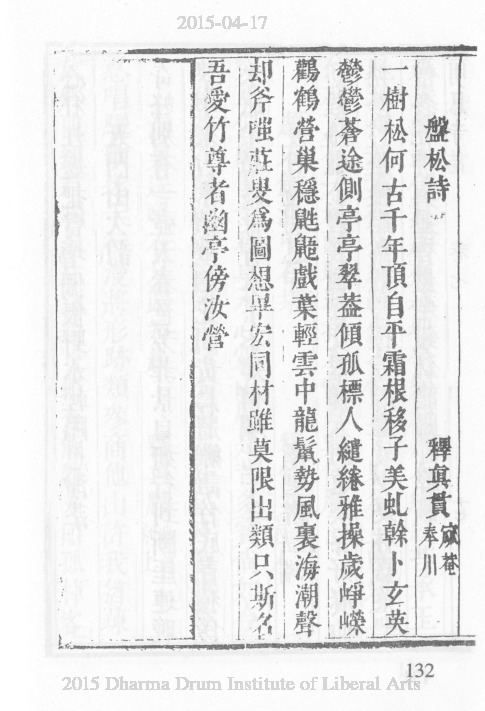 2015-04-17
盤松詩
釋真貫 寂菴 奉川
一樹松何古千年頂自平霜根移子美虬榦卜玄英
鬱鬱蒼途側亭亭翠葢傾孤標人繾綣雅操歲崢嶸
鸛鶴營巢穩鼪鼯戲葉輕雲中龍鬣勢風裏海潮聲
却斧嗤莊叟為圖想畢宏同材雖莫限出類只斯名
吾愛竹尊者幽亭傍汝營
132
2015 Dharma Drum Institute of Liberal Arts